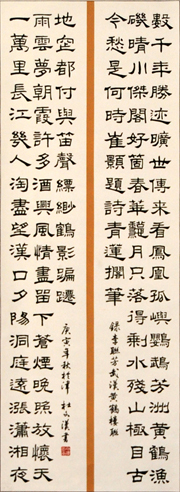 數千年勝迹曠世傳來看鳳凰孤岫鸚鵡芳洲黃鶴漁
磯晴川傑閣好箇春華龝月只落得乘水殘山極目古
今愁是何時崔顥題詩青蓮擱筆
錄李聯芳武漢黃鶴樓聯
一萬里長江幾人淘盡望漢口夕陽洞庭遠漲瀟湘夜
雨雲夢朝霞許多酒興風情盡留下蒼煙晚照放懷天
地空都付與笛聲縹緲鶴影蹁躚
庚寅年秋於津 杜文漢書